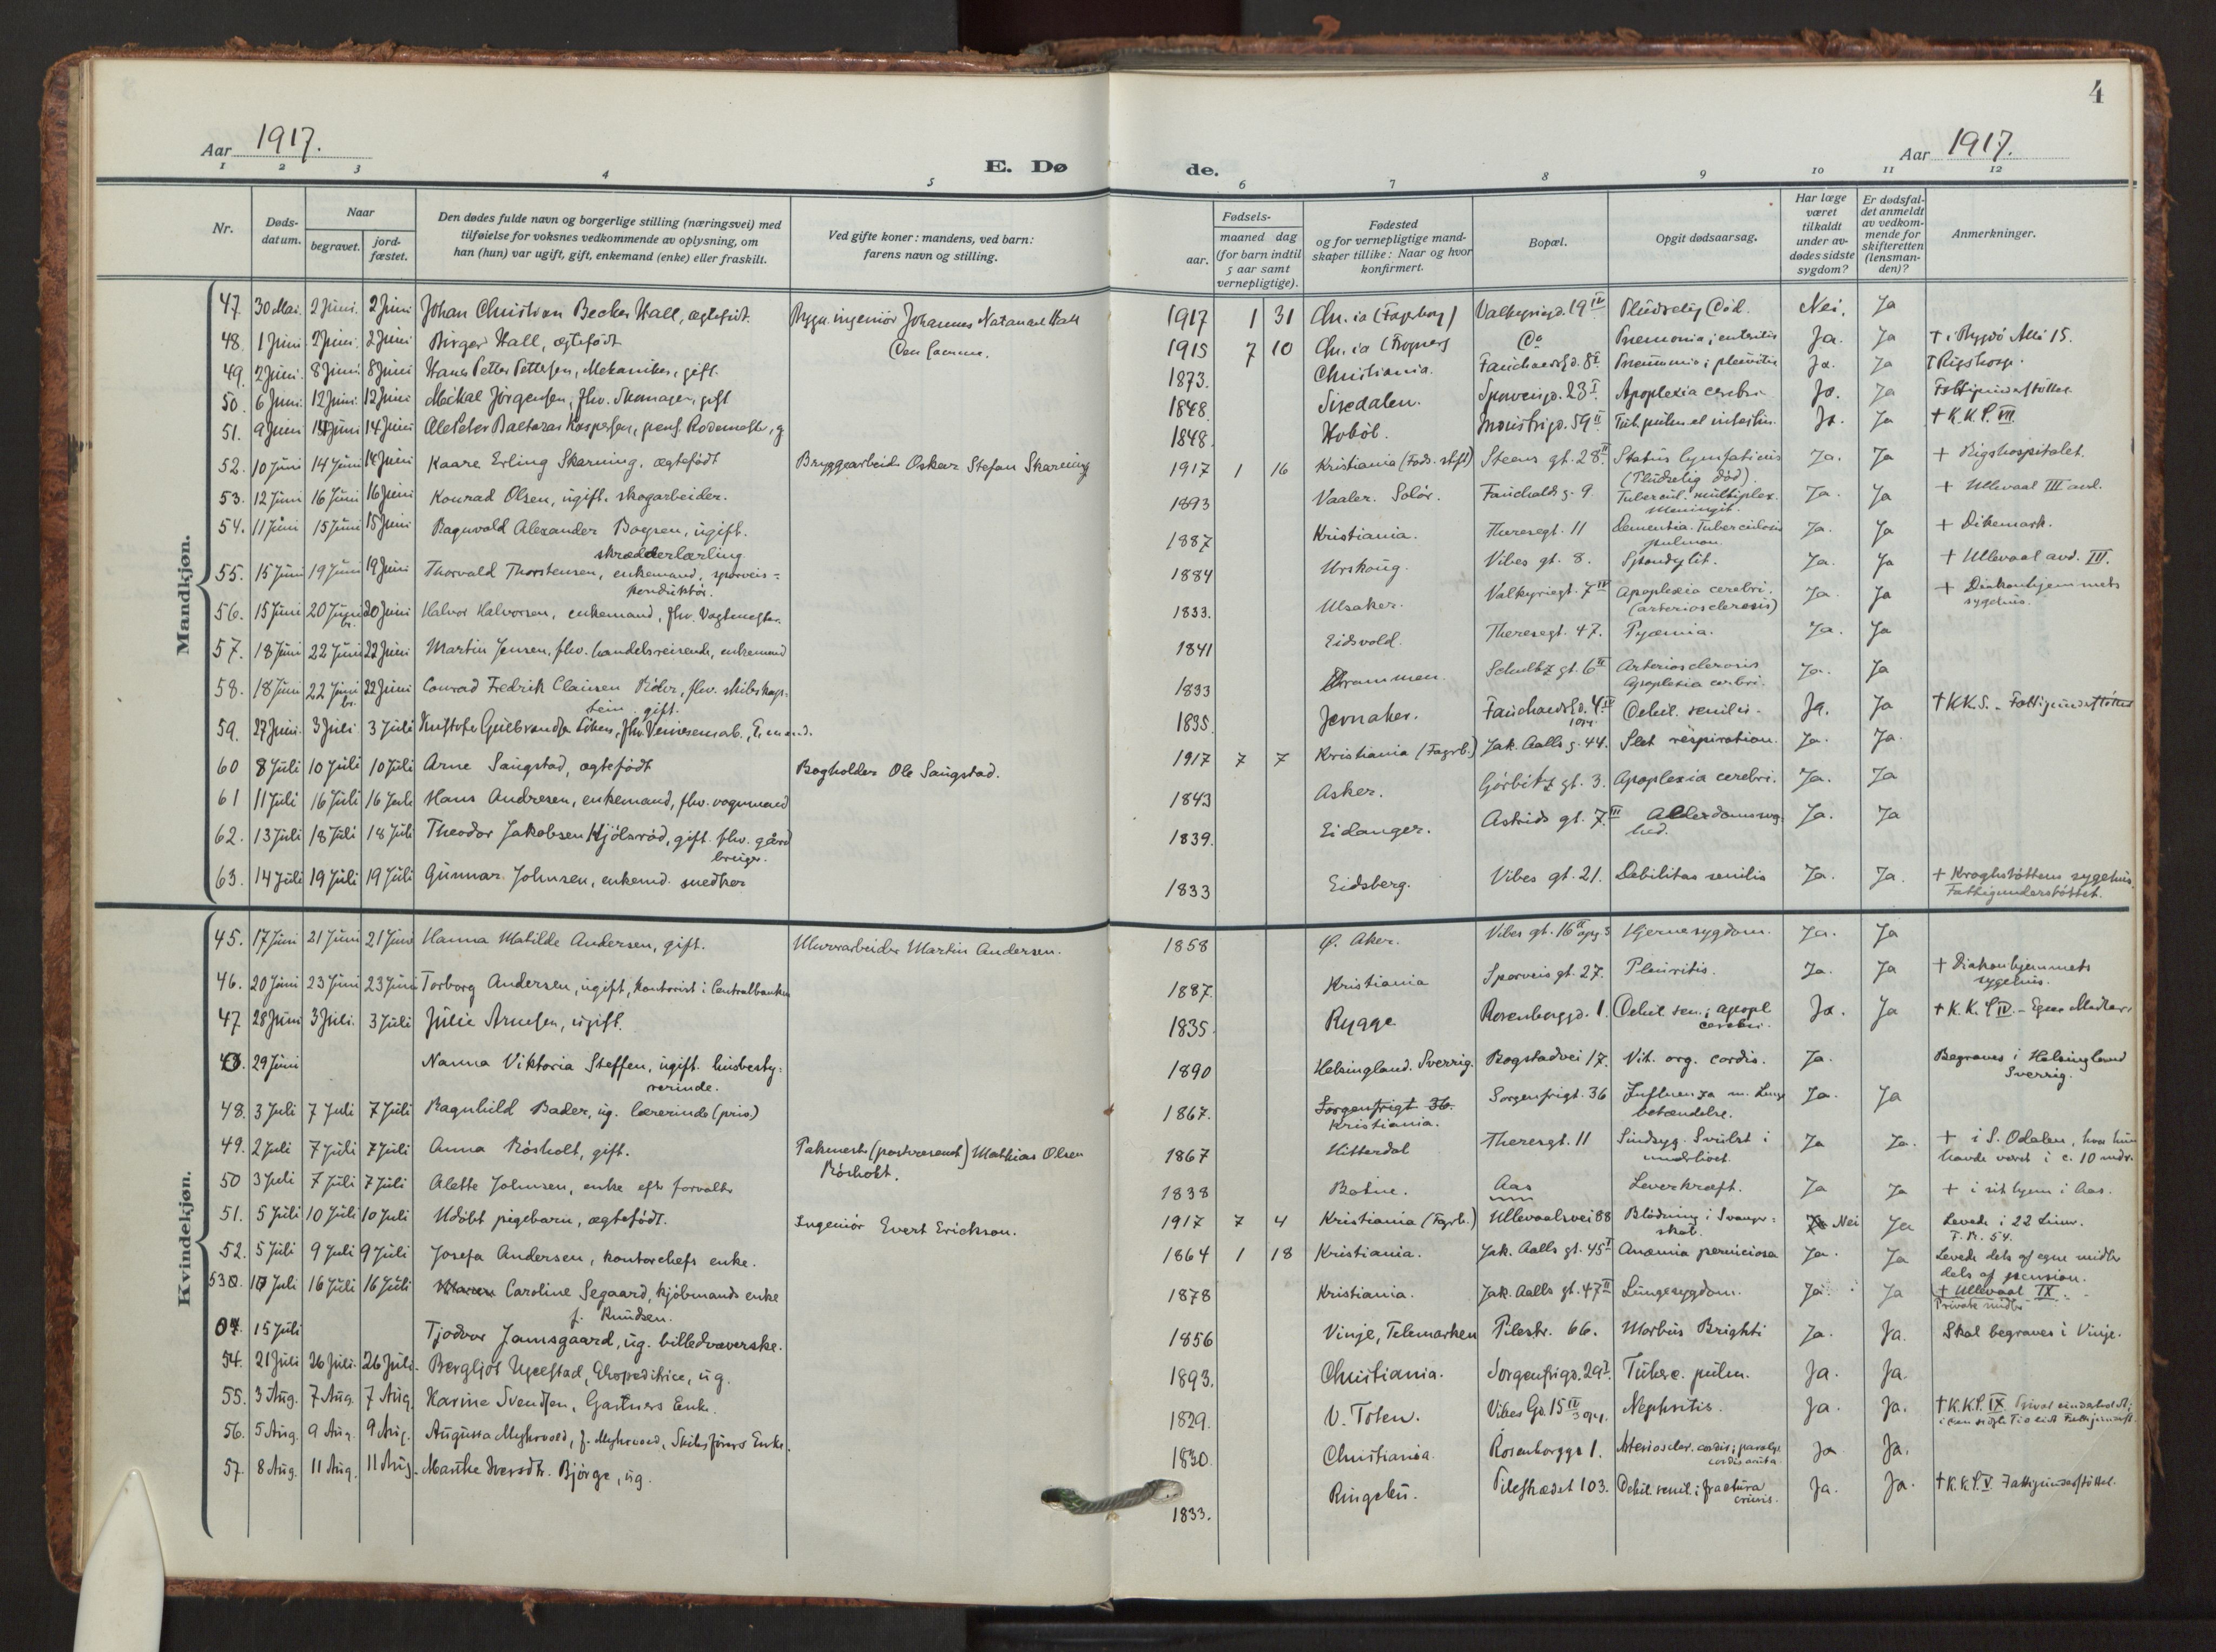 4
Aar 1917.
E. Dø de.
Aar 1917.
1 2 3 4 5 6 7 8 9 10 11 12
Nr.
Døds-datum.
Naar
begravet.
jord-fæstet.
Den dødes fulde navn og borgerlige stilling (næringsvei) med
tilføielse for voksnes vedkommende av oplysning, om
han (hun) var ugift, gift, enkemand (enke) eller fraskilt.
Ved gifte koner: mandens, ved barn:
farens navn og stilling.
Fødsels-
aar. maaned dag
(for barn indtil
5 aar samt
vernepligtige).
Fødested
og for vernepligtige mand-
skaper tillike: Naar og hvor
konfirmert.
Bopæl.
Opgit dødsaarsag.
Har læge
været
tilkaldt
under av-
dødes sidste
sygdom?
Er dødsfal-
det anmeldt
av vedkom-
mende for
skifteretten
(lensman-
den)?
Anmerkninger.
Mandkjøn.
47. 30 Mai. 2 Juni. 2 Juni Johan Christian Becker Hall, ægtefødt. Bygn. ingeniör Johannes Natanael Hall 1917 1 31 Chr.ia (Fagerborg) Valkyriegd. 19 IV Pludselig Död. Nei. Ja
48. 1 Juni 2 Juni. 2 Juni Birger Hall, ægtefödt Den samme. 1915 7 10 Chr.ia (Frogner) Do Pnemonia; enteritis Ja. Ja + i Bygdö Allé 15.
49. 2 Juni. 8 Juni 8 Juni Hans Petter Pettersen, Mekaniker, gift. 1873. Christiania. Fauchaldsgd. 8 I. Pneumonia; pleuritis Ja. Ja + Rigshosp.
50. 6 Juni 12 Juni. 12 Juni Mickal Jörgensen, fhv. gift 1848. Sporveisgd. 23 I. Apoplexia cerebri Ja. Ja Fattigunderstöttet.
51. 9 Juni 14 Juni 14 Juni Ole Peter Baltazar Kaspersen, pens. Rodemester, g 1848. Hoböl. Industrigd. 59 II. Tub. pulm. et intestin. Ja. Ja + K. K. S. VII
52. 10 Juni 14 Juni 14 Juni Kaare Erling Skarning, ægtefödt Bryggearbeider Oskar Stefan Skarning 1917 1 16 Kristiania (Föds. stift) Steens gt. 28 II. Status lymfaticus Ja. Ja + Rigshospitalet.
(Pludselig död).
53. 12 Juni 16 Juni 16 Juni Konrad Olsen, ugift. skogarbeider. 1893 Vaaler. Solör. Fauchalds g. 9. Tubercul. multiplex. Ja. Ja + Ullevaal III avd.
Meningit.
54. 11 Juni 15 Juni 15 Juni Ragnvald Alexander Boysen, ugift. 1887 Kristiania. Theresegt. 11 Dementia. Tuberculosis Ja. Ja + Dikemark.
skrædderlærling pulmon.
55. 15 Juni 19 Juni 19 Juni Thorvald Thorstensen, enkemand, sporveis= 1884 Urskoug. Vibes gt. 8. Spondylit. Ja. Ja + Ullevaal avd. III.
konduktör.
56. 15 Juni 20 Juni 20 Juni Halvor Halvorsen, enkemand, fhv. Vagtmester. 1833. Ulsaker. Valkyriegt. 7 IV Apoplexia cerebri. Ja. Ja + Diakonhjemmets
br. (arteriosclerosis) sygehus.
57. 18 Juni 22 Juni 22 Juni Martin Jensen, fhv. handelsreisende, enkemand 1841 Eidsvold. Theresegt. 47. Pyæmia. Ja. Ja
58. 18 Juni 22 Juni 22 Juni Conrad Fredrik Clausen Röder, fhv. skibskap= 1833 Drammen. Schultz gt. 6 II Arteriosclerosis Ja. Ja
br. tein gift. Apoplexia cerebri.
59. 27 Juni. 3 Juli. 3 Juli Kristofer Gulbrandsen fhv. Veivesenarb., E.mand. 1835 Jevnaker. Fauchaldsgd. 4 IV Debil. senilis. Ja. Ja + K.K.S. - Fattigunderstöttet
60 8 Juli 10 Juli 10 Juli Arne Saugstad, ægtefödt Bogholder Ole Saugstad. 1917 7 7 Kristiania (Fagrb.) Jak. Aalls g. 44. Slet respiration. Ja. Ja.
61 11 Juli 16 Juli 16 Juli Hans Andresen, enkemand, fhv. vognmand 1843 Asker. Görbitz gt. 3. Apoplexia cerebri. Ja. Ja
62. 13 Juli 18 Juli 18 Juli Theodor Jakobsen Hjölsröd, gift. fhv. gård 1839. Eidanger. Astrids gt. 7 III Alderdomssvag Ja. Ja
bruger. hed.
63. 14 Juli 19 Juli 19 Juli Gunnar Johnsen, enkemd. snedker 1833 Eidsberg. Vibes gt. 21. Debilitas senilis Ja. Ja. + Kroghstöttens sygehus.
Fattigunderstöttet.
Kvindekjøn.
45. 17 Juni 21 Juni 21 Juni Hanna Matilde Andersen, gift. Murerarbeider Martin Andersen. 1858 Ø. Aker. Vibes gt. 16 II opg. 3 Hjernesygdom. Ja. Ja
46. 20 Juni 23 Juni 23 Juni Torborg Andersen, ugift, kontorist i Centralbanken 1887. Kristiania Sporveisgt. 27. Pleuritis. Ja. Ja + Diakonhjemmets
sygehus.
47 28 Juni 3 Juli. 3 Juli Julie Arnesen, ugift. 1835. Rygge Rosenborggd. 1. Debil. sen.; apopl Ja. Ja + K. K. S IV. - Egne Midler.
cerebri.
29 Juni Nanna Viktoria Steffen, ugift. husbesty= 1890 Helsingland. Sverrig. Bogstadvei 17. Vit. org. cordis. Ja. Begraves i Helsingland
rerinde. Sverrig.
48. 3 Juli 7 Juli 7 Juli Ragnhild Bader, ug. lærerinde (priv) 1867. Sorgenfrigt 36. Sorgenfrigt. 36 Influenza m. Lunge Ja. Ja
Kristiania. betændelse.
49. 2 Juli 7 Juli 7 Juli Anna Rösholt, gift. Pakmester (postvesenet) Mathias Olsen 1867 Hitterdal Theresgt. 11 Sindsyg. Svulst i Ja Ja. + i S. Odalen, hvor hun
Rösholt. underlivet. havde været i c. 10 mdr.
50 3 Juli 7 Juli 7 Juli Alette Johnsen, enke efter forvalter 1838 Botne. Aas Leverkræft. Ja Ja + i sit hjem i Aas.
51. 5 Juli 10 Juli 10 Juli Udöbt pigebarn, ægtefödt. Ingeniör Evert Erickson. 1917 7 4 Kristiania (Fagrb.) Ullevaalsvei 88 Blödning i Svanger= Ja Nei Ja Levede i 22 timer.
skab. F. R. 54.
52. 5 Juli 9 Juli 9 Juli Josefa Andersen, kontorchefs enke. 1864 1 18 Kristiania. Jak. Aalls gt. 45 I Anæmia perniciosa Ja. Ja Levede dels af egne midler
dels af pension.
53 10 Juli 16 Juli 16 Juli Caroline Segaard, kjöbmands enke 1878 Kristiania. Jak. Aalls gt. 47 II Lungesygdom. Ja. Ja + Ullevaal IX
f. Knudsen. Private midler
15 Juli Tjodvor Jamsgaard, ug. billedvæverske. 1856 Vinje, Telemarken Pilestr. 66. Morbus Brighti Ja. Ja. Skal begraves i Vinje.
54. 21 Juli 26 Juli. 26 Juli. Bergljot Ekspeditrice, ug. 1893. Christiania. Sorgenfrigd. 29 I. Tuberc. pulm. Ja. Ja.
55. 3 Aug. 7 Aug. 7 Aug. Karine Svendsen, Gartners Enke. 1829. V. Toten. Vibes Gd. 15 IV 3 opg. Nephritis. Ja. Ja. + K.K.S. IX
56. 5 Aug. 9 Aug. 9 Aug. Augusta Myhrvold, f. Myhrvold, Skibsförers Enke. 1830. Christiania. Rosenborggd 1. Arterioscler. cordis; paralys. Ja Ja.
cordis acuta
57. 8 Aug. 11 Aug. 11 Aug. Marthe Iversdtr. Bjørge, ug. 1833. Ringebu. Pilestrædet 103. Debil. senil.; fractura Ja. Ja. + K.K.S. V. Fattigunderstöttet.
cruris.